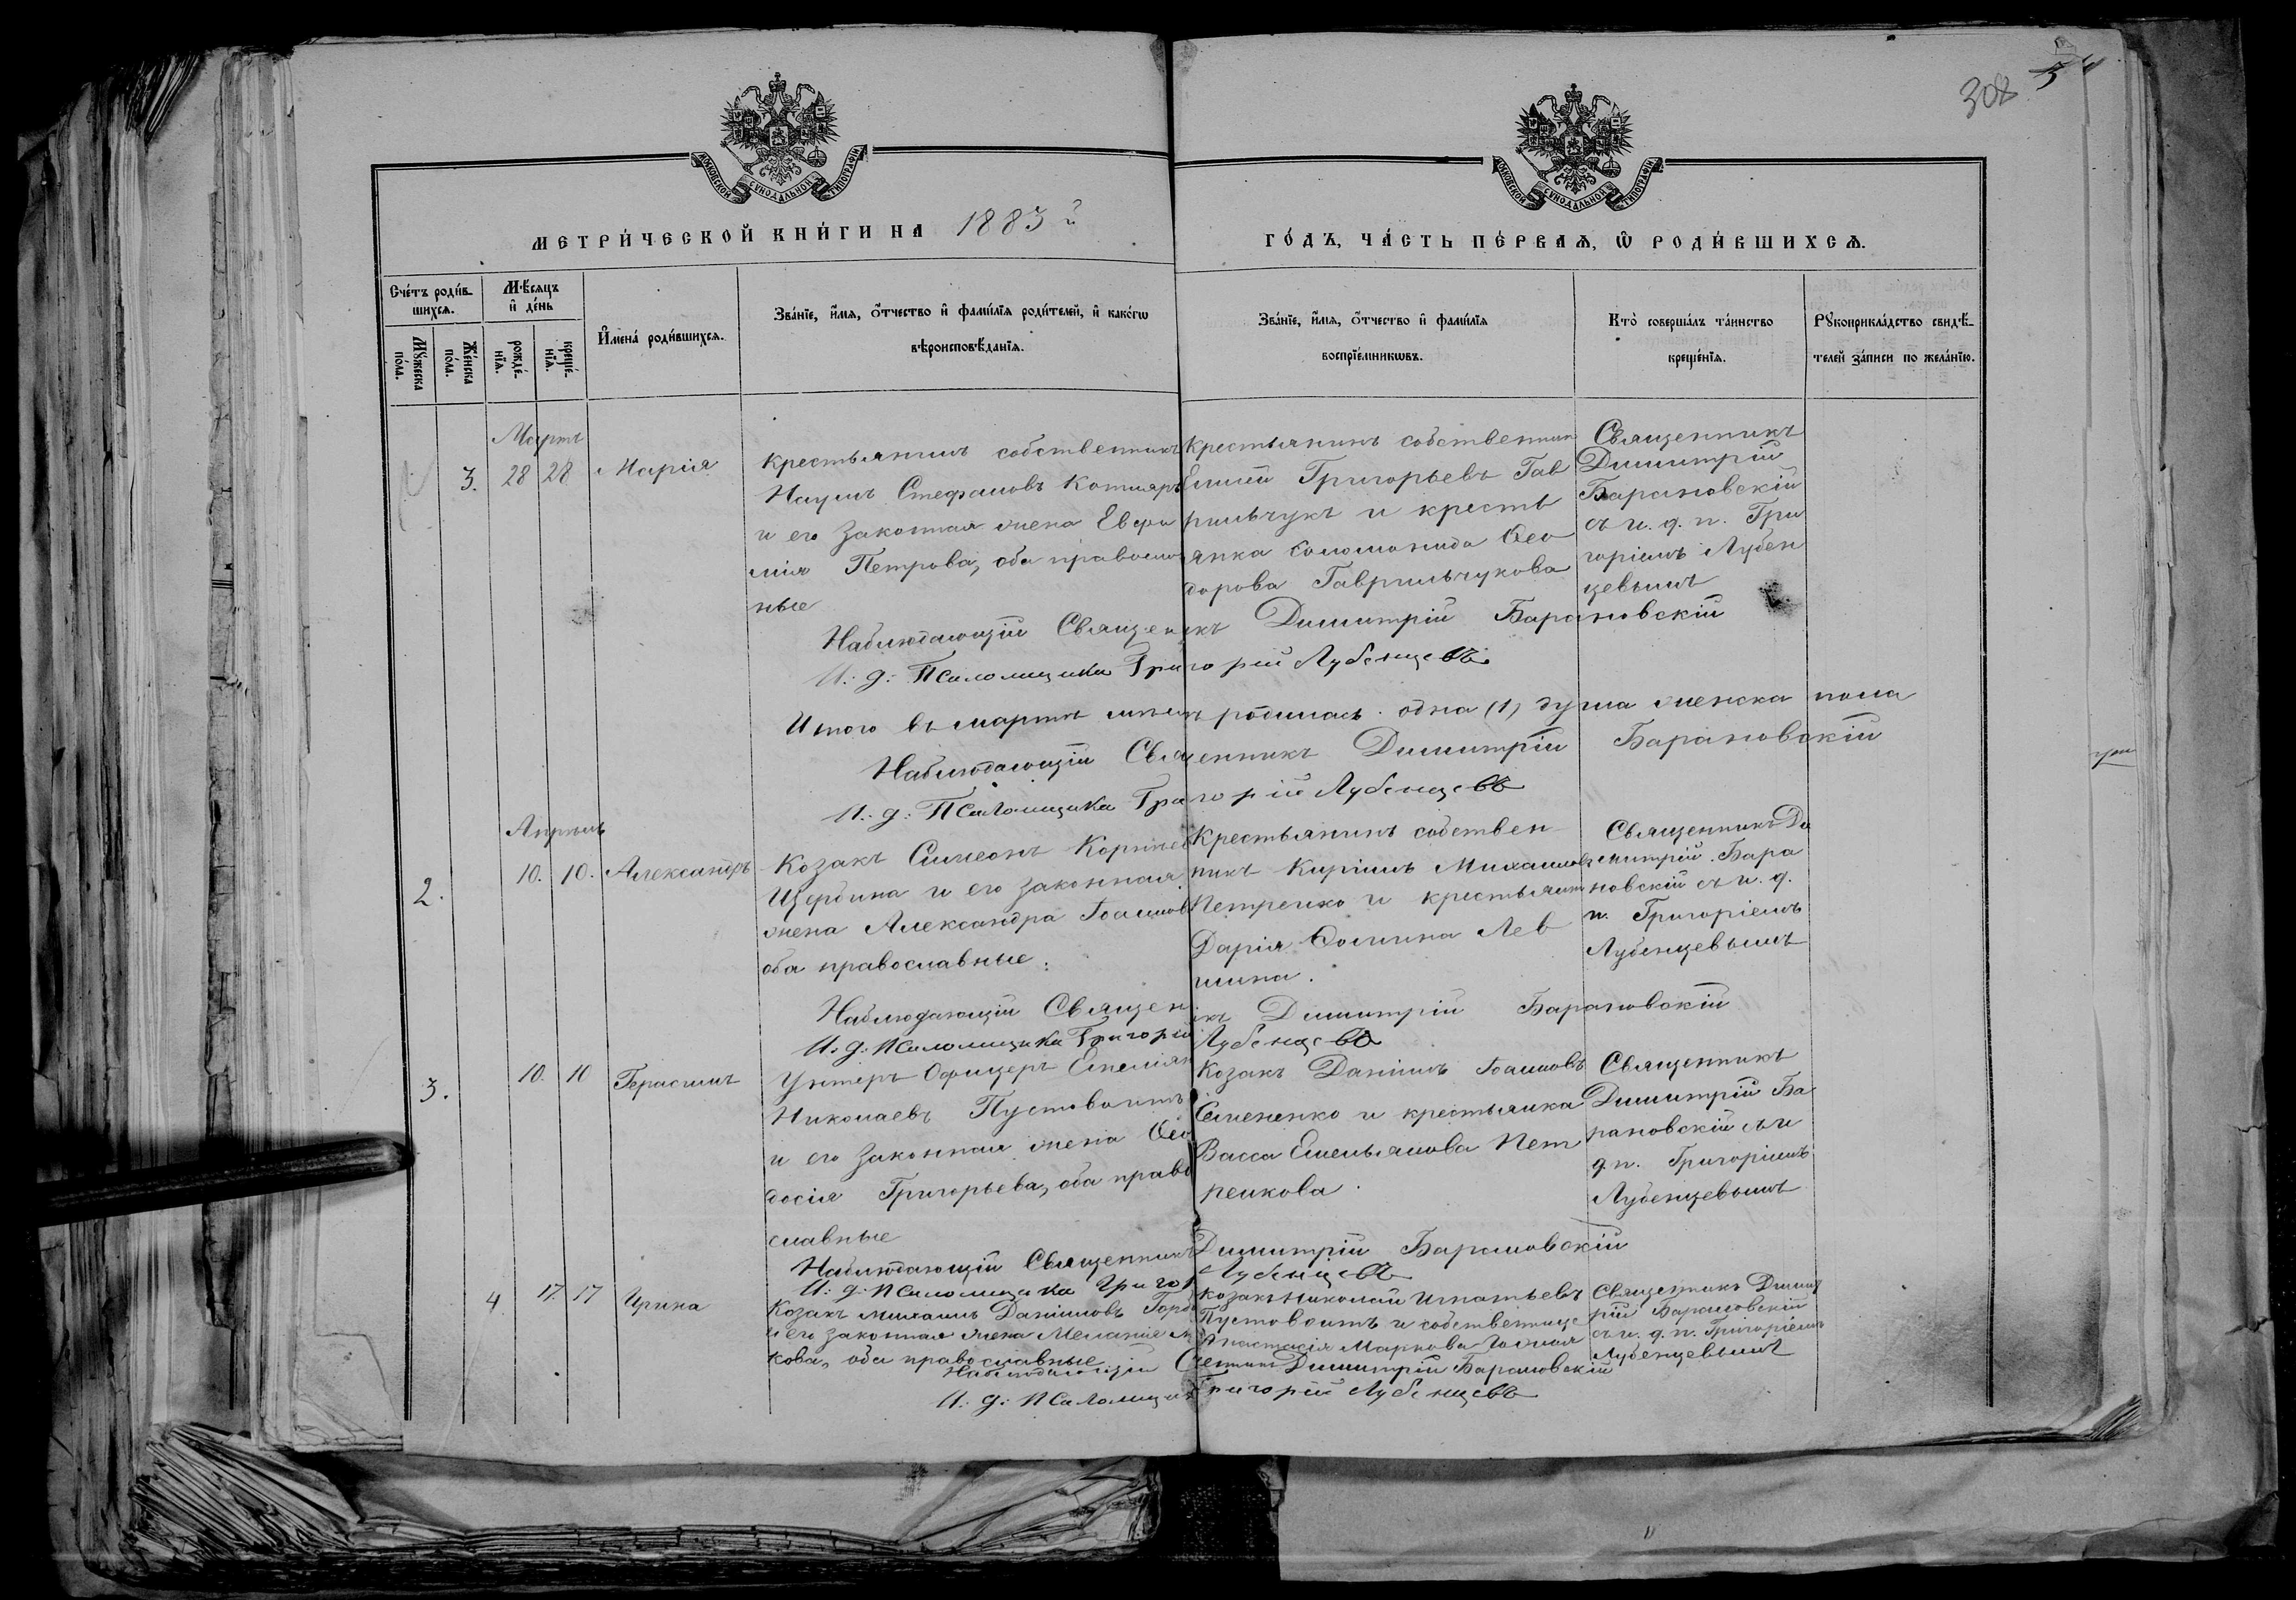 308
МОСКОВСКОЙ СУНОДАЛЬНОЙ ТИПОГРАФІИ
МОСКОВСКОЙ СУНОДАЛЬНОЙ ТИПОГРАФІИ
МЕТРИ́ЧЕСКОЙ КНИ́ГИ НА 1883й
ГО́ДЪ, ЧА́СТЬ ПЕ́РВАѦ, Ѿ РОДИ́ВШИХСѦ.
Сче́тъ роди́в-
шихсѧ.
Мꙋжеска по́ла.
Же́нска по́ла.
Мѣ́сѧцъ и҆ де́нь
рожде́-
нїѧ.
креще́-
нїѧ.
И҆мена̀ роди́вшихсѧ.
Зва́нїе, и҆́мѧ, ѻ҆́тчество и҆ фами́лїѧ роди́телей, и҆ како́гѡ
вѣроисповѣ́данїѧ.
Зва́нїе, и҆́мѧ, ѻ҆́тчество и҆ фами́лїѧ
воспрїе́мникѡвъ.
Кто̀ соверша́лъ та́инство
креще́нїѧ.
Рꙋкоприкла́дство свидѣ́-
телей за́писи по жела́нїю.
Мартъ
3. 28 28 Марія
Крестьянинъ собственникъ
Наумъ Стефановъ Котляръ
и его законная жена Евфи
мія Петрова, оба правосла
вные
Крестьянинъ собственник
Григорьевъ Гав
рильчукъ и кресть
янка Соломонида Ѳео
дорова Гаврильчукова
Священникъ
Димитрій
Барановскій
съ и. д. п. Гри
горіемъ Лубен
цевымъ
Наблюдающій Священикъ Димитрій Барановскій
И: д: Псаломщика Григорій Лубенцевъ.
Итого въ мартѣ родилась одна (1) душа женска пола
Наблюдающій Священникъ Димитрій Барановскій
И: д: Псаломщика Григорій Лубенцевъ
Апрѣль
2. 10. 10. Александръ
Козакъ Симеонъ Корнѣев
Щербина и его законная
жена Александра Іоаннов
оба православные.
Крестьянинъ собствен
никъ Кирилъ Михаиловъ
Петренко и крестьянка
Дарія Фомина Лев
шина.
Священникъ Ди
митрій Бара
новскій съ и. д.
п. Григоріемъ
Лубенцевымъ
Наблюдающій Священикъ Димитрій Барановскій
И: д: Псаломщика Григорій Лубенцевъ
3. 10. 10 Герасимъ
Унтеръ Офицеръ Емеліян
Николаевъ Пустовоитъ
и его законная жена Ѳео
досія Григорьева, оба право
славные
Козакъ Даніилъ Іоанновъ
Семененко и крестьянка
Васса Емельянова Пет
ренкова.
Священникъ
Димитрій Ба
рановскій съ и
д. п. Григоріемъ
Лубенцевымъ
Наблюдающій Священникъ Димитрій Барановскій
И: д: Псаломщика Григор Лубенцевъ
4. 17. 17 Ирина
Козакъ Михаилъ Даніиловъ
и его законная жена Меланія
кова, оба православные
Козакъ Николай Игнатьевъ
Пустовоитъ и собственница
Анастасія Маркова
Священникъ Димит
рій Барановскій
съ и. д. п. Григоріемъ
Лубенцевымъ
Наблюдающій Священникъ Димитрій Барановскій
И: д: Псаломщика Григорій Лубенцевъ